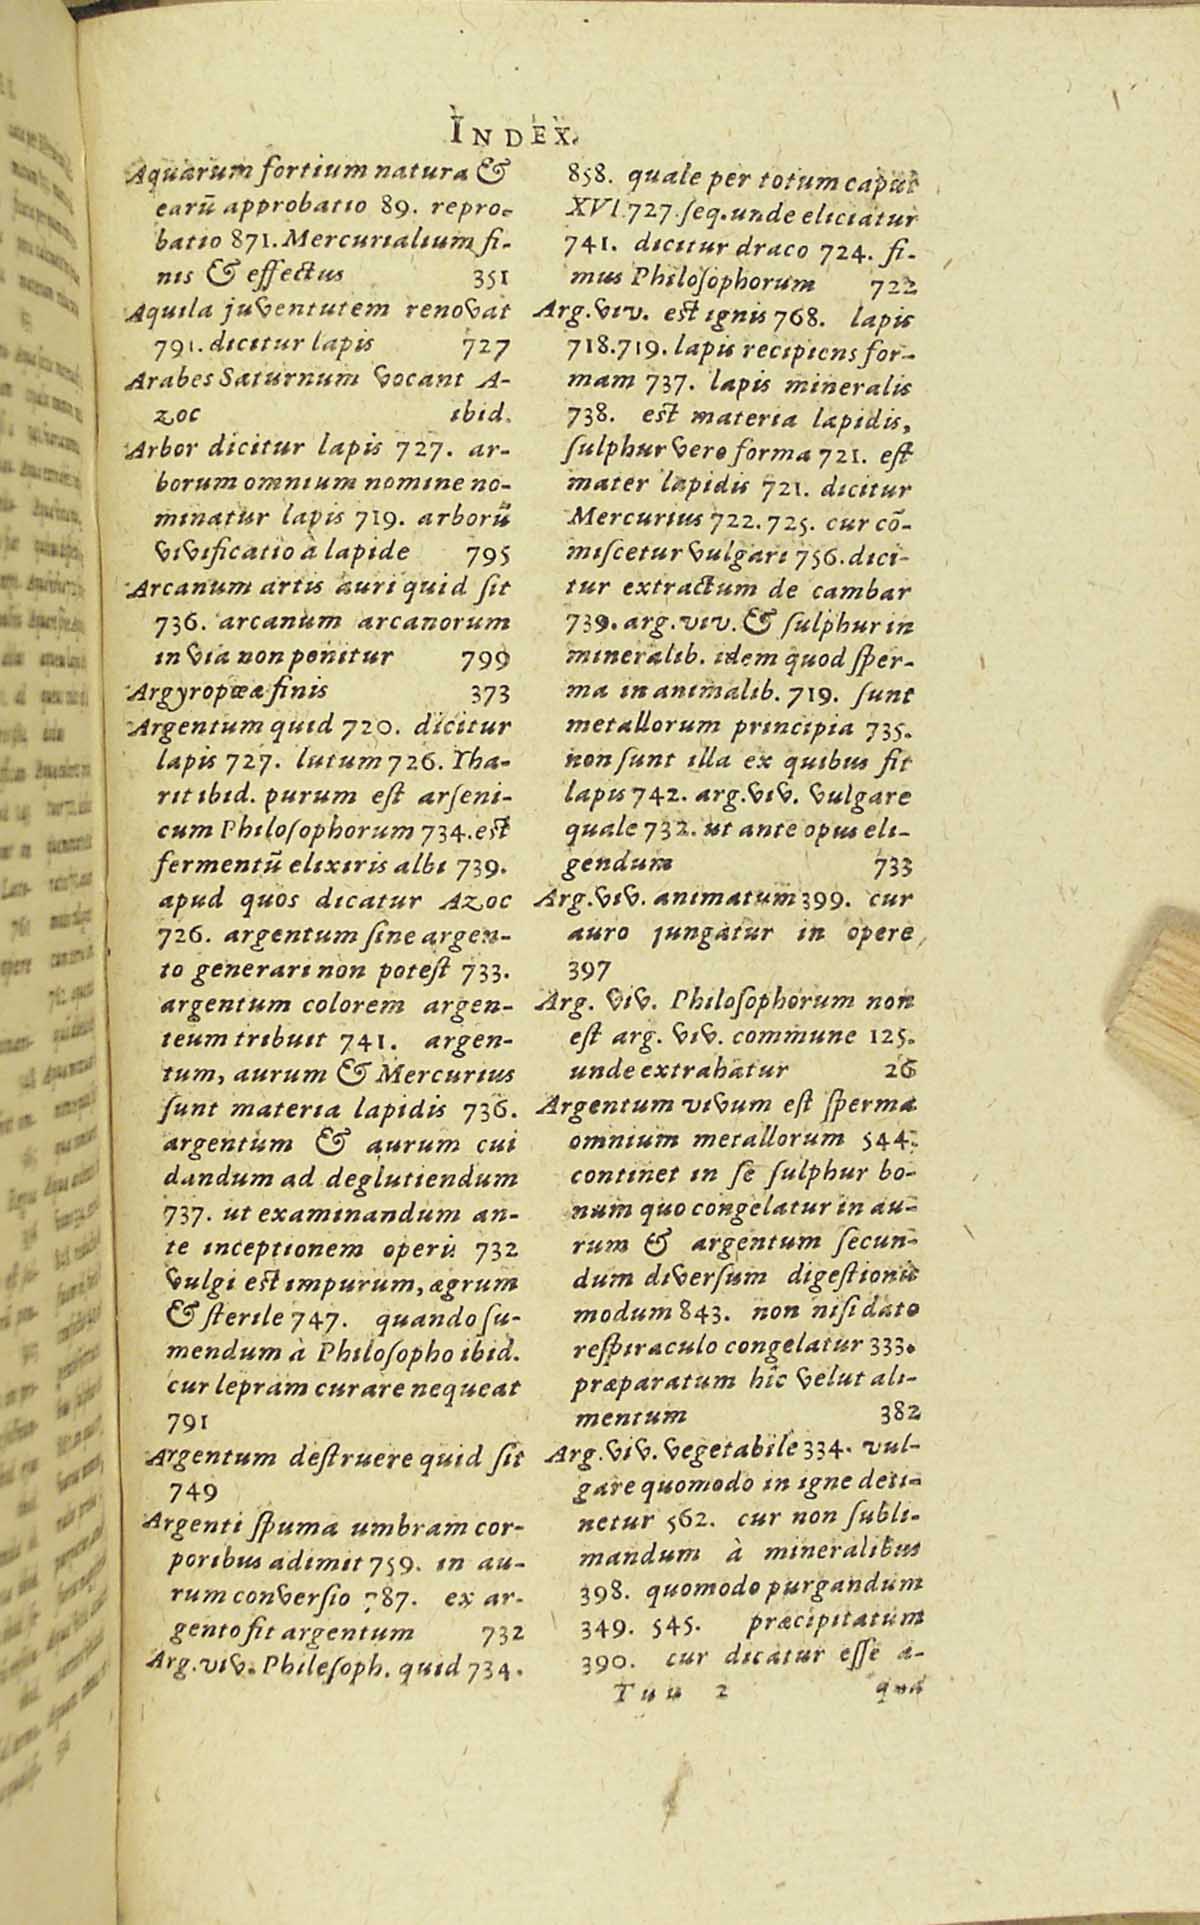 INDEX.
Aquarum fortium natura &
earū approbatio 89. repro-
batio 871. Mercurialium fi-
nis & effectus 351
Aquila juventutem renovat
791. dicitur lapis 727
Arabes Saturnum vocant A-
zoc ibid.
Arbor dicitur lapis 727. ar-
borum omnium nomine no-
minatur lapis 719. arborū
vivificatio à lapide 795
Arcanum artis auri quid sit
736. arcanum arcanorum
in via non ponitur 799
Argyropœæ finis 373
Argentum quid 720. dicitur
lapis 727. lutum 726. Yha-
rit ibid. purum est arseni-
cum Philosophorum 734. est
fermentū elixiris albi 739.
apud quos dicatur Azoc
726. argentum sine argen-
to generari non potest 733.
argentum colorem argen-
teum tribuit 741. argen-
tum, aurum & Mercurius
sunt materia lapidis 736.
argentum & aurum cui
dandum ad deglutiendum
737. ut examinandum an-
te inceptionem operis 732
vulgi est impurum, ægrum
& sterile 747. quando su-
mendum à Philosopho ibid.
cur lepram curare nequeat
791
Argentum destruere quid sit
749
Argenti spuma umbram cor-
poribus adimit 759. in au-
rum conversio 787. ex ar-
gento fit argentum 732
Arg. viv. Philosoph. quid 734.
858. quale per totum caput
XVI 727 seq. unde eliciatur
741. dicitur draco 724. fi-
mus Philosophorum 722
Arg. viv. est ignis 768. lapis
718.719. lapis recipiens for-
mam 737. lapis mineralis
738. est materia lapidis,
sulphur vero forma 721. est
mater lapidis 721. dicitur
Mercurius 722.725. cur cō-
miscetur vulgari 756. dici-
tur extractum de cambar
739. arg. viv. & sulphur in
mineralib. idem quod sper-
ma in animalib. 719. sunt
metallorum principia 735.
non sunt illa ex quibus fit
lapis 742. arg. viv. vulgare
quale 732. ut ante opus eli-
gendum 733
Arg. viv. animatum 399. cur
auro jungatur in opere
397
Arg. viv. Philosophorum non
est arg. viv. commune 125.
unde extrahatur 26
Argentum vivum est sperma
omnium metallorum 544.
continet in se sulphur bo-
num quo congelatur in au-
rum & argentum secun-
dum diversum digestionis
modum 843. non nisi dato
respiraculo congelatur 333.
præparatum hîc velut ali-
mentum 382
Arg. viv. vegetabile 334. vul-
gare quomodo in igne deti-
netur 562. cur non subli-
mandum à mineralibus
398. quomodo purgandum
349. 545. præcipitatum
390. cur dicatur esse a-
Tuu 2 qua